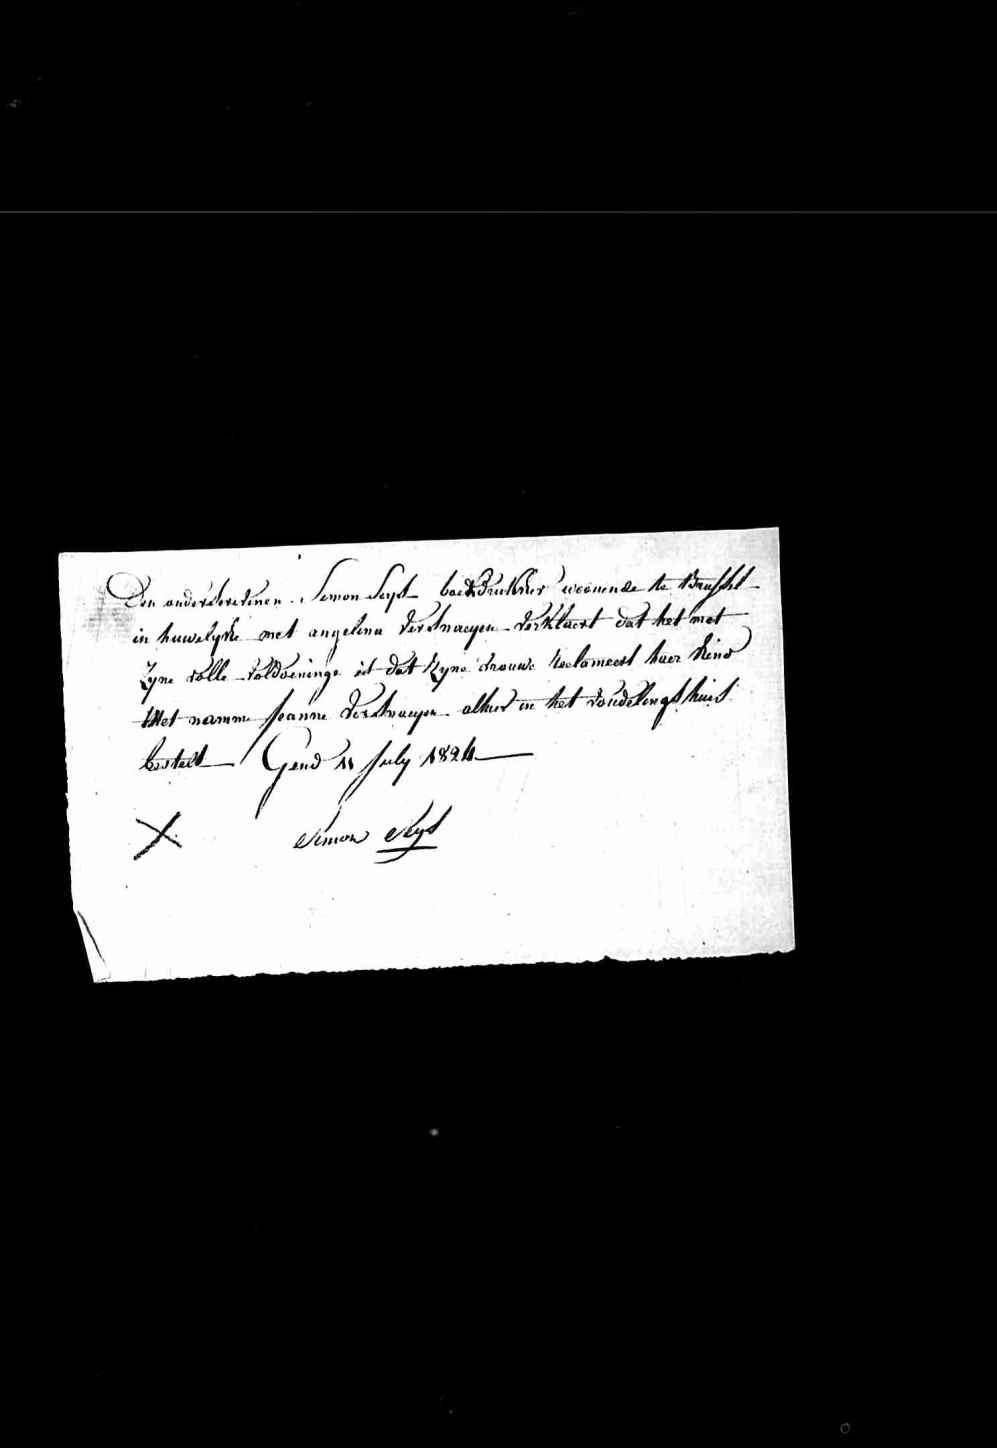 Den onderschrevenen Simon Seys boekdrukker woonende te Brussel
in huwelyke met angelina Verstraeyen Verklaert dat het met
Zyne volle voldoeninge is dat zyne vrouwe reclameert haer kind
Met namme Jeanne Verstraeyen alhier in het vondelings huis
bestelt Gend 11 July 1824
Simon Seys